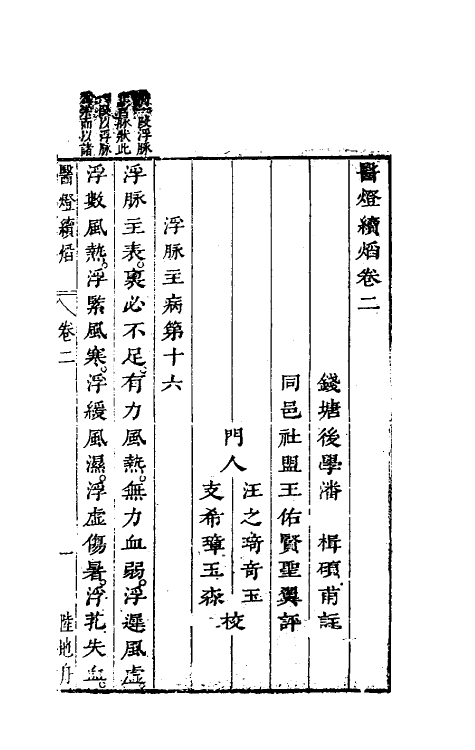 醫燈續焰卷二
錢塘後學潘　楫碩甫註
同邑社盟王佑賢聖翼評
門人
汪之琦奇玉
支希璋玉森
校
浮脉主病第十六
浮脉主表。裏必不足。有力風熱。無力血弱。浮遲風虛。
浮數風熱。浮緊風寒。浮緩風濕。浮虛傷暑。浮芤失血。
醫燈續焰
卷二
一
陸地舟
浮脉
脉狀此
以浮脉
而以諸